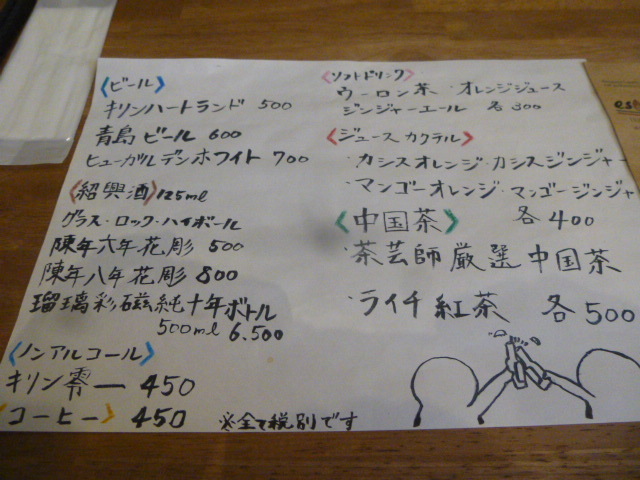 〈ビール〉
キリンハートランド 500
青島ビール 600
ヒューガルデンホワイト 700
〈紹興酒〉125ml
グラス・ロック・ハイボール
陳年六年花彫 500
陳年八年花彫 800
瑠璃彩磁純十年ボトル
500ml 6.500
〈ノンアルコール〉
キリン零一 450
〈コーヒー〉 450
※全て税別です
〈ソフトドリンク〉
ウーロン茶・オレンジジュース
ジンジャーエール 各300
〈ジュースカクテル〉
・カシスオレンジ・カシスジンジャー
・マンゴーオレンジ・マンゴージンジャ
各400
〈中国茶〉
・茶芸師厳選中国茶
・ライチ紅茶 各500